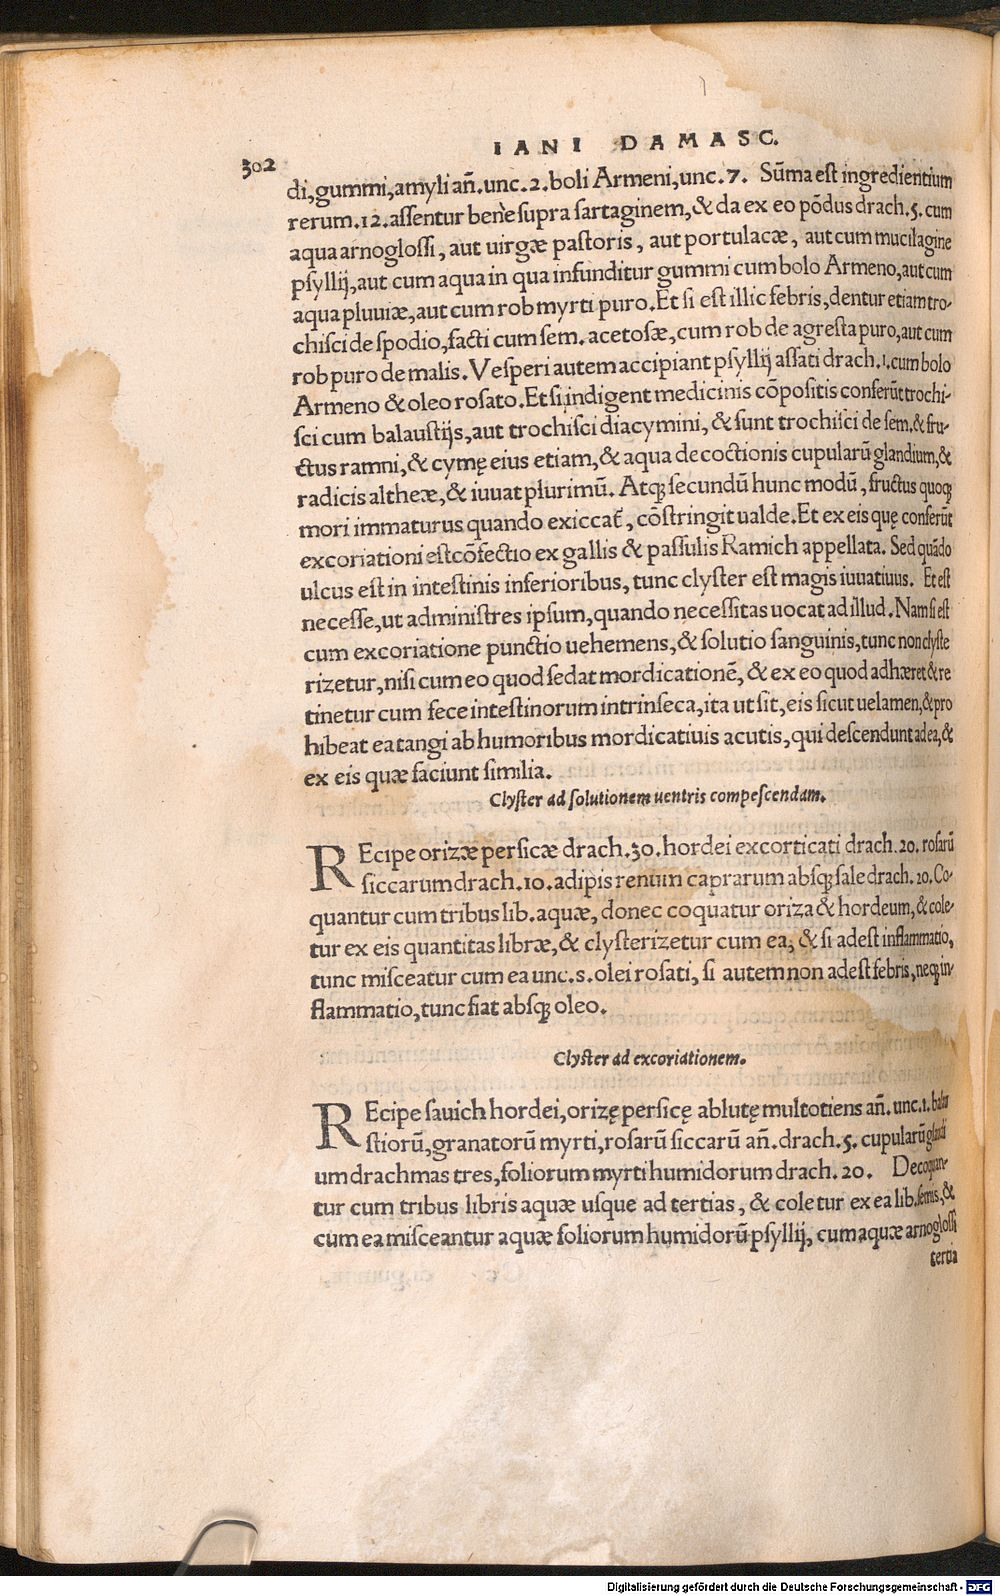 302
IANI DAMASC.
di, gummi, amyli añ. unc. 2. boli Armeni, unc. 7. Sũma est ingredientium
rerum. 12. assentur bene supra sartaginem, & da ex eo põdus drach. 5. cum
aqua arnoglossi, aut uirgæ pastoris, aut portulacæ, aut cum mucilagine
psyllij, aut cum aqua in qua infunditur gummi cum bolo Armeno, aut cum
aqua pluuiæ, aut cum rob myrti puro. Et si est illic febris, dentur etiam tro-
chisci de spodio, facti cum sem. acetosæ, cum rob de agresta puro, aut cum
rob puro de malis. Vesperi autem accipiant psyllij assati drach. 1. cum bolo
Armeno & oleo rosato. Et si indigent medicinis cõpositis conferũt trochi-
sci cum balaustijs, aut trochisci diacymini, & sunt trochisci de sem. & fru-
ctus ramni, & cymę eius etiam, & aqua decoctionis cupularũ glandium, &
radicis altheæ, & iuuat plurimũ. Atq; secundũ hunc modũ, fructus quoq;
mori immaturus quando exiccat̃, cõstringit ualde. Et ex eis quę conferũt
excoriationi est cõfectio ex gallis & passulis Ramich appellata. Sed quãdo
ulcus est in intestinis inferioribus, tunc clyster est magis iuuatiuus. Et est
necesse, ut administres ipsum, quando necessitas uocat ad illud. Nam si est
cum excoriatione punctio uehemens, & solutio sanguinis, tunc non clyste
rizetur, nisi cum eo quod sedat mordicationẽ, & ex eo quod adhæret & re
tinetur cum fece intestinorum intrinseca, ita ut sit, eis sicut uelamen, & pro
hibeat ea tangi ab humoribus mordicatiuis acutis, qui descendunt ad ea, &
ex eis quæ faciunt similia.
Clyster ad solutionem uentris compescendam.
REcipe orizæ persicæ drach. 30. hordei excorticati drach. 20. rosarũ
siccarum drach. 10. adipis renum caprarum absq; sale drach. 20. Co-
quantur cum tribus lib. aquæ, donec coquatur oriza & hordeum, & cole-
tur ex eis quantitas libræ, & clysterizetur cum ea, & si adest inflammatio,
tunc misceatur cum ea unc. s. olei rosati, si autem non adest febris, neq; in-
flammatio, tunc fiat absq; oleo.
Clyster ad excoriationem.
REcipe sauich hordei, orizę persicę ablutę multotiens añ. unc. 1. balau
stiorũ, granatorũ myrti, rosarũ siccarũ añ. drach. 5. cupularũ glandi
um drachmas tres, foliorum myrti humidorum drach. 20. Decoquan-
tur cum tribus libris aquæ usque ad tertias, & coletur ex ea lib. semis, &
cum ea misceantur aquæ foliorum humidorũ psyllij, cum aquæ arnoglossi
tertia
Digitalisierung gefördert durch die Deutsche Forschungsgemeinschaft - DFG